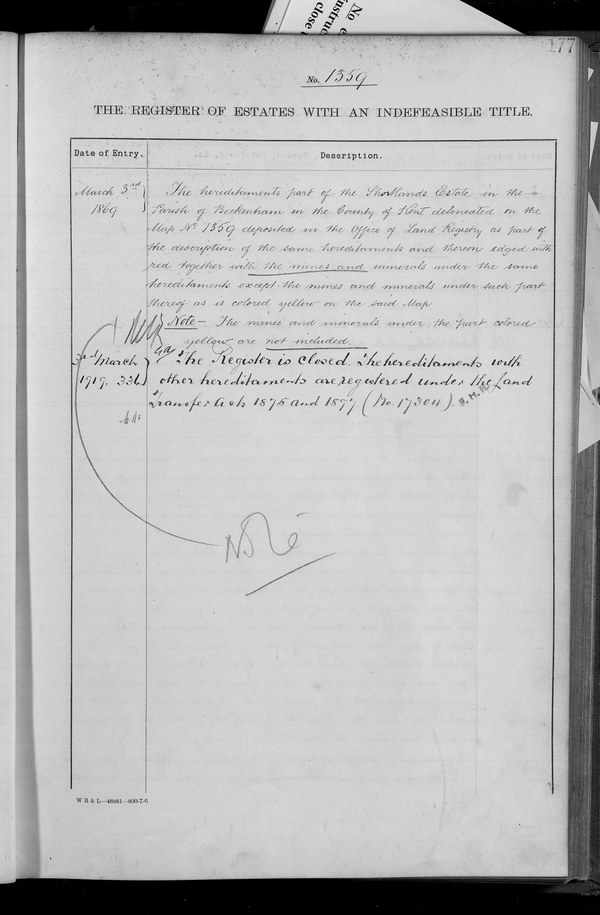 No e
instruc
close
177
No. 1359
THE REGISTER OF ESTATES WITH AN INDEFEASIBLE TITLE.
Date of Entry. Description.
March 3rd 1869
The hereditaments part of the Shortlands Estate in the
Parish of Beckenham in the County of Kent delineated on the
Map No 1359 deposited in the Office of Land Registry as part of
the description of the same hereditaments and thereon edged with
red together with the mines and minerals under the same
hereditaments except the mines and minerals under such part
thereof as is colored yellow on the said Map
Note – The mines and minerals under the part colored
yellow are not included
3rd March
1919.
The Register is closed. The hereditaments with
other hereditaments are registered under the Land
Transfer Acts 1875 and 1897 (No. 17304).
Note
W B & L—46981—800-7-6